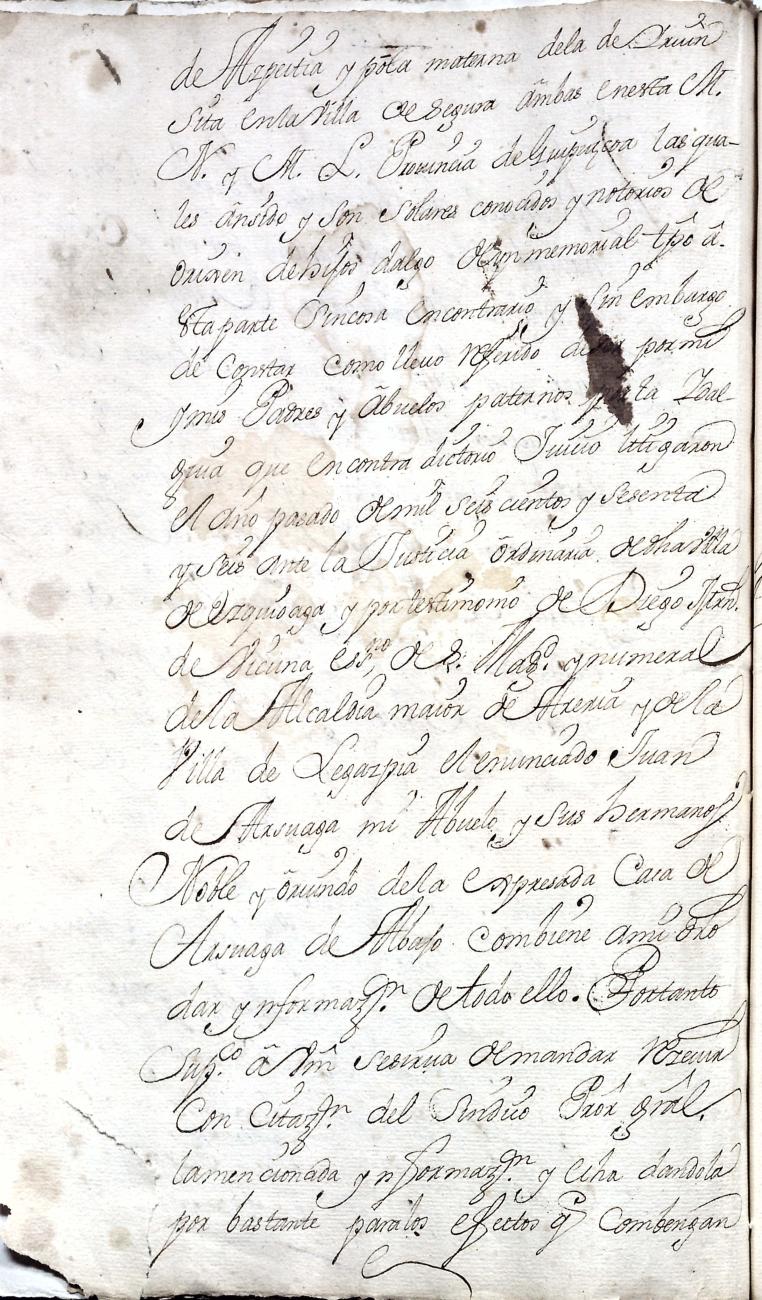 de Azpeitia y por la materna dela de Oriun
Sita en la Villa de Segura ambas en esta M.
N. y M. L. Provincia de Guipuzcoa las qua-
les an sido y son Solares conocidos y notorios de
origen de hijos dalgo de inmemorial tpō a
esta parte sin cosa en contrario y sin embargo
de constar como llevo referido de por mi
y mis Padres y Abuelos paternos por la Ydal-
guia que en contradictorio Juicio litigaron
el año pasado de mil seis cientos y sesenta
y seis ante la Justicia ordinaria de dha Villa
de Ezquioaga y por testimonio de Diego Mrn.
de Vicuna essno de S. Magd. y numeral
dela Alcaldia maior de Areria y dela
Villa de Legazpia el enunciado Juan
de Arsuaga mi Abuelo y sus hermanos
Noble y oriundo dela expresada Casa de
Arsuaga de Abajo combiene a mi dro
dar ynformazn. de todo ello. Portanto
Supco. a Vm se sirva de mandar recevir
Con Citazn. del Sindico Pror gral.
la mencionada ynformazn. y echa dandola
por bastante para los efectos q combengan